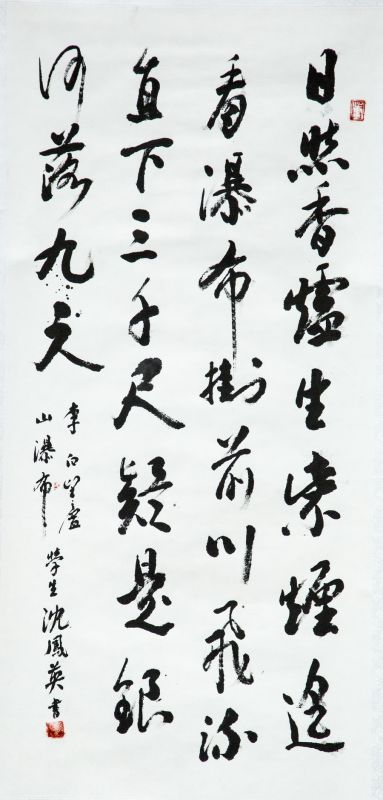 日照香爐生紫煙遙
看瀑布掛前川飛流
直下三千尺疑是銀
河落九天
李白望廬
山瀑布 學生沈鳳英書